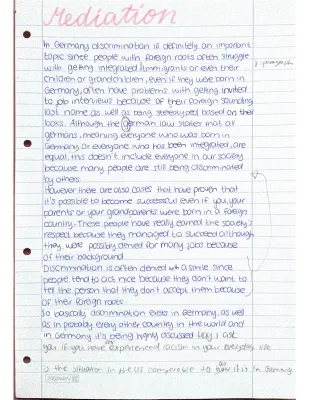 Mediation
In Germany discrimination is definitely an important
topic since people with foreign roots often struggle
with getting integrated. Immigrants or even their
children or grandchildren, even if they were born in
Germany, often have problems with getting invited
to job interviews because of their foreign sounding
last name as well as being stereotyped based on their
looks. Although the German law states that all
germans, meaning everyone who was born in
Germany or everyone who has been integrated, are
equal, this doesn't include everyone in our society
because many people are still being discriminated
by others.
However there are also cases that have proven that
it's possible to become successful even if you, your
parents or your grandparents were born in a foreign
country. These people have really earned the society's
respect because they managed to succeed although
they were possibly denied for many jobs because
of their background.
Discrimination is often denied with a smile since
people tend to act nice because they don't want to
tell the person that they don't accept them because
of their foreign roots.
So basically discrimination exists in Germany, as well
as in probably every other country in the world and
in Germany it's being highly discussed. May I ask
you if you have experienced racism in your everyday life
is the situation in the US comparable to how it is in Germany